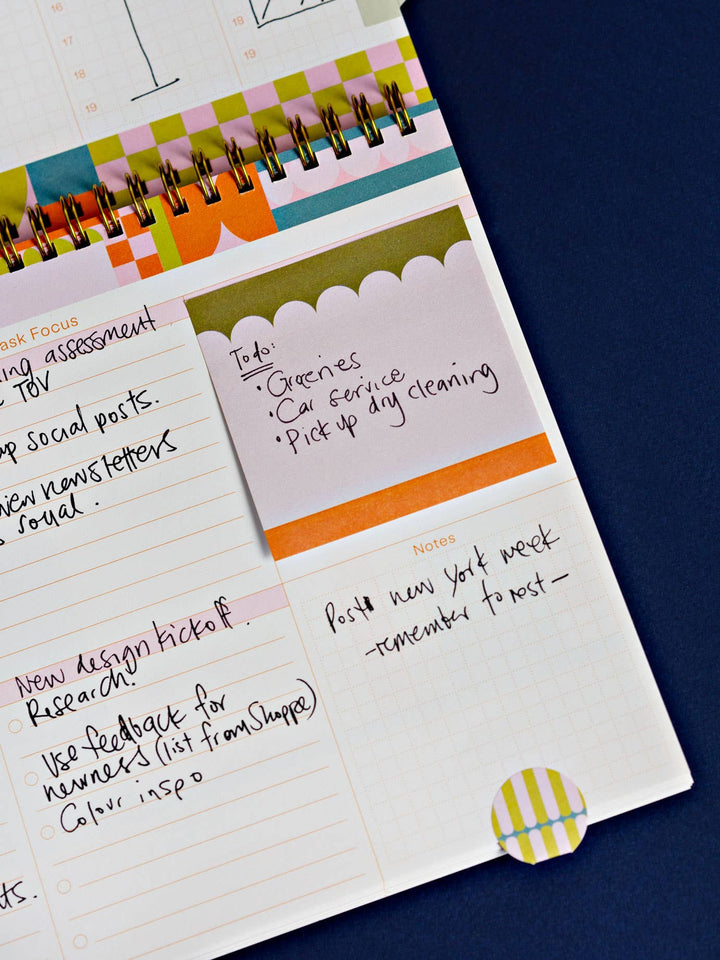 16
17
18
19
18
19
ask Focus
ing assessment
TOV
up social posts.
view newsletters
social.
Todo:
• Groceries
• Car service
• Pick up dry cleaning
Notes
Post new york week
-remember to rest-
New design kickoff.
Research.
Use feedback for
newness (list from Shoppe)
Colour inspo
ts.